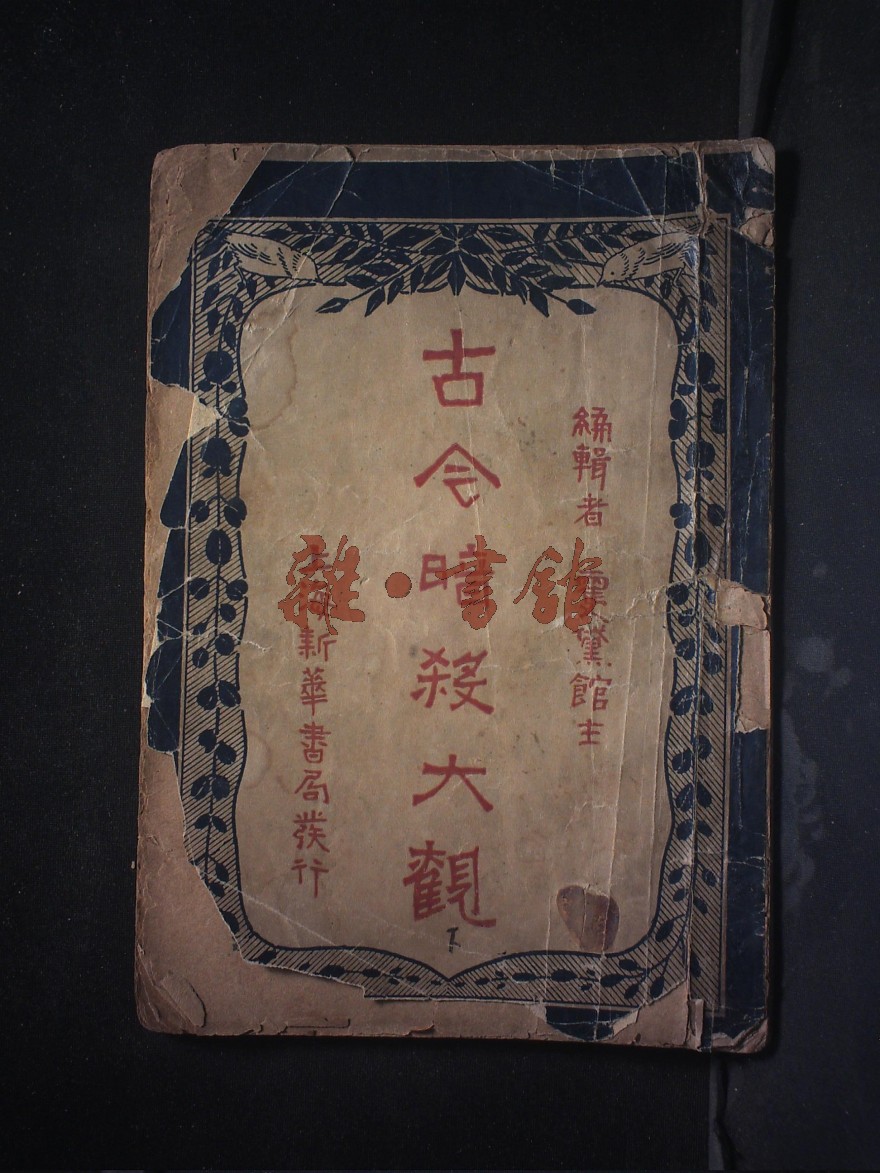 編輯者 䨥黛館主
古今暗殺大觀
下
上海新華書局發行
雜·書館